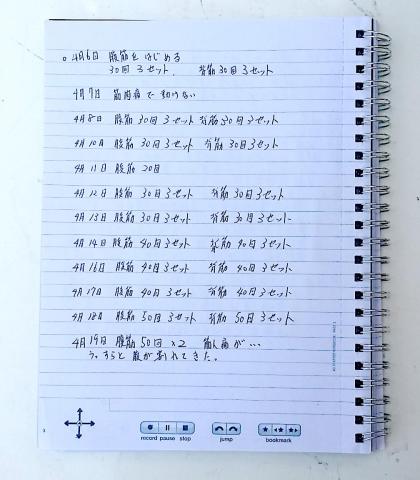 ○ 4月6日 腹筋をはじめる
30回 3セット. 背筋30回3セット
4月7日 筋肉痛で動けない
4月8日 腹筋 30回3セット 背筋30回3セット
4月10日 腹筋 30回3セット 背筋30回3セット
4月11日 腹筋 20回
4月12日 腹筋 30回3セット 背筋30回3セット
4月13日 腹筋 30回3セット 背筋30回3セット
4月14日 腹筋 40回3セット 背筋 40回3セット
4月16日 腹筋 40回3セット 背筋 40回3セット
4月17日 腹筋 40回3セット 背筋 40回3セット
4月18日 腹筋 50回3セット 背筋 50回3セット
4月19日 腹筋 50回 ×2 筋肉痛が…
うっすらと腹が割れてきた.
record pause stop
jump
bookmark